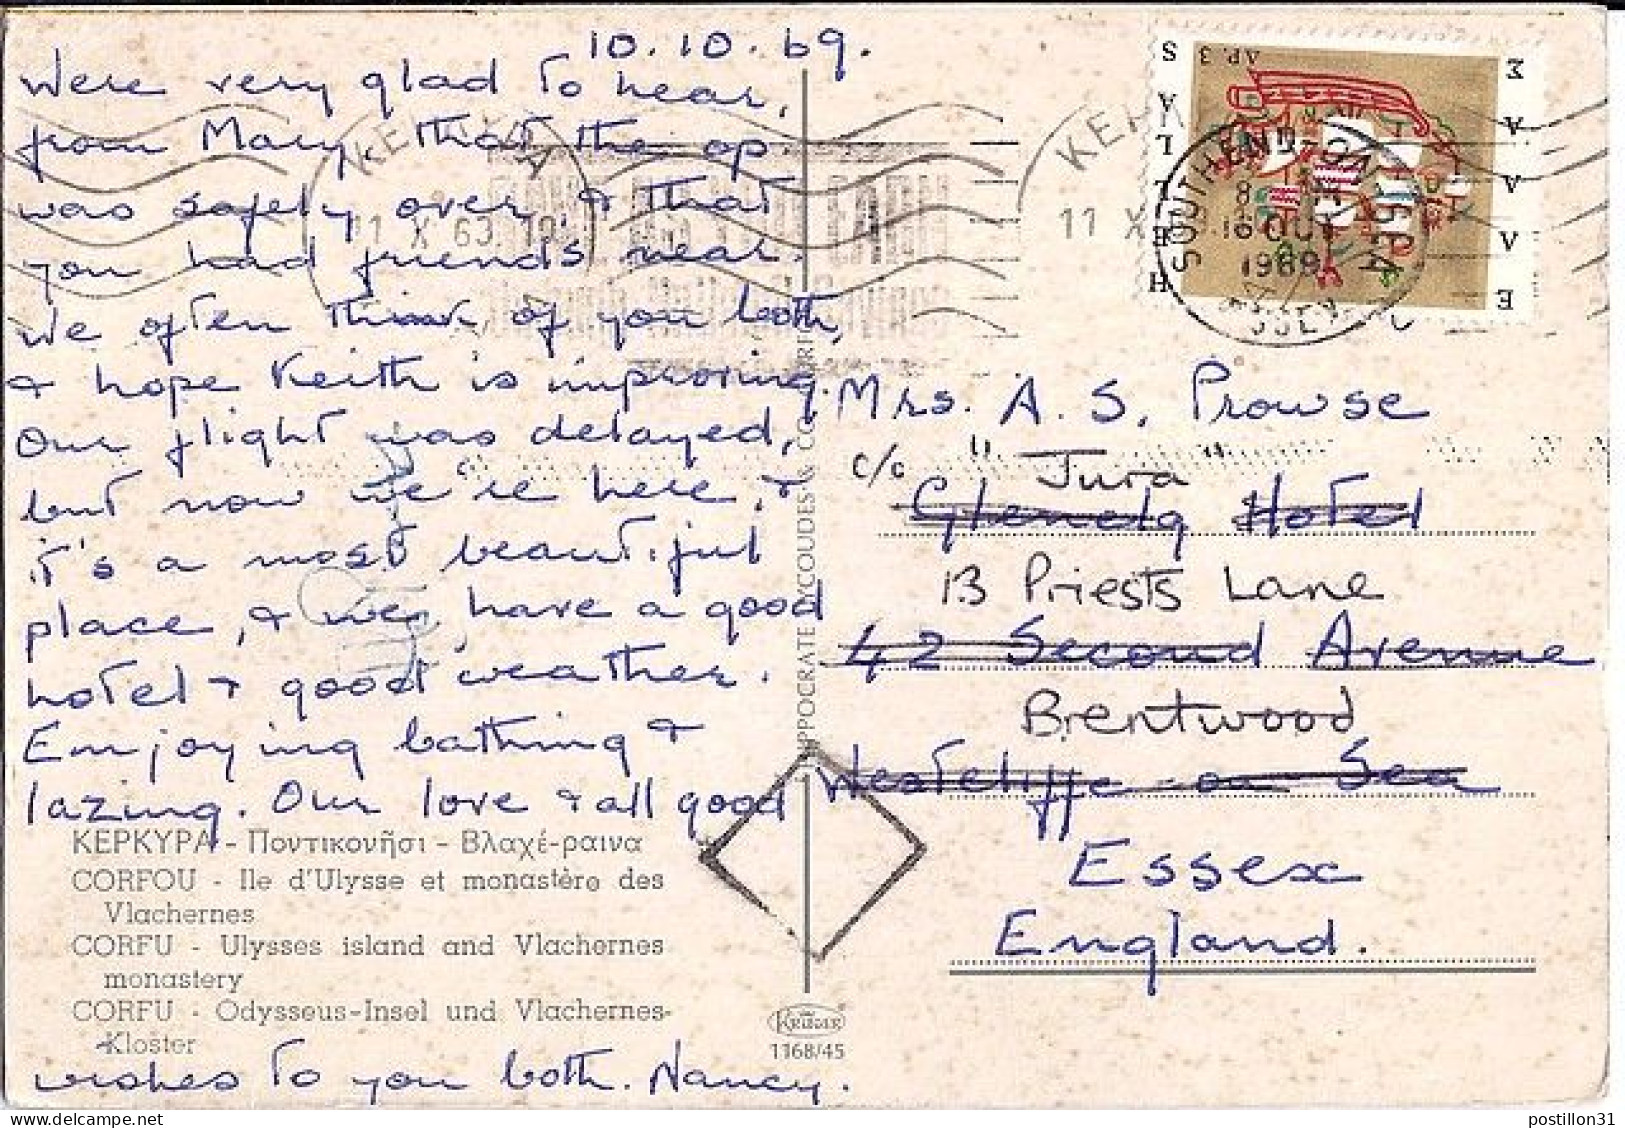 10.10.69.
Were very glad to hear,
from Mary, that the op.
was safely over & that
you had friends near.
We often think of you both,
& hope Keith is improving.
Our flight was delayed,
but now we're here, &
it's a most beautiful
place, & we have a good
hotel & good weather.
Enjoying bathing &
lazing. Our love & all good
ΚΕΡΚΥΡΑ - Ποντικονῆσι - Βλαχέ-ραινα
CORFOU - Ile d'Ulysse et monastère des
Vlachernes
CORFU - Ulysses island and Vlachernes
monastery
CORFU - Odysseus-Insel und Vlachernes-
Kloster
wishes to you both. Nancy.
KRÜGER
1168/45
ΕΛΛΑΣ
HELLAS
ΑΡ. 3
11 X 69
SOUTHEND-ON-SEA
1969
ESSEX
Mrs. A. S. Prowse
c/o "Jura
Glenelg Hotel
13 Priests Lane
42 Second Avenue
Brentwood
Westcliffe-on-Sea
Essex
England.
postillon31